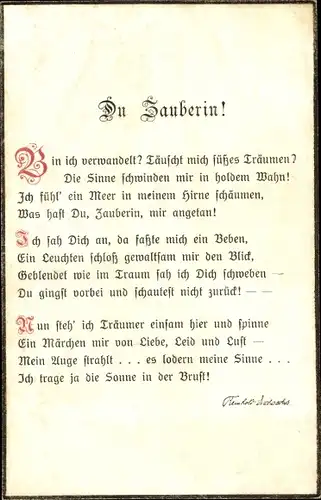 Du Zauberin!
Bin ich verwandelt? Täuscht mich süßes Träumen?
Die Sinne schwinden mir in holdem Wahn!
Ich fühl' ein Meer in meinem Hirne schäumen,
Was hast Du, Zauberin, mir angetan!
Ich sah Dich an, da faßte mich ein Beben,
Ein Leuchten schloß gewaltsam mir den Blick,
Geblendet wie im Traum sah ich Dich schweben —
Du gingst vorbei und schautest nicht zurück! — —
Nun steh' ich Träumer einsam hier und spinne
Ein Märchen mir von Liebe, Leid und Lust —
Mein Auge strahlt . . . es lodern meine Sinne . . .
Ich trage ja die Sonne in der Brust!